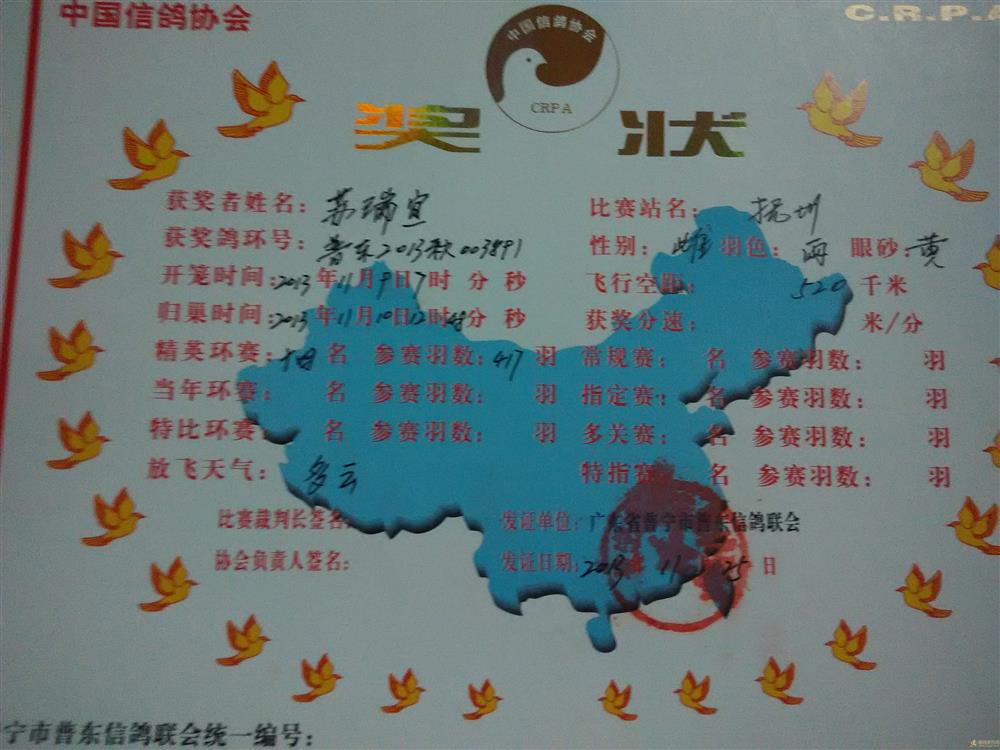 中国信鸽协会
C.R.P.A
中国信鸽协会
CRPA
奖 状
获奖者姓名：苏瑞宜 比赛站名：抚州
获奖鸽环号：普东2013秋003891 性别：雌 羽色：雨 眼砂：黄
开笼时间：2013年11月9日7时 分 秒 飞行空距：520千米
归巢时间：2013年11月10日12时48分 秒 获奖分速： 米/分
精英环赛： 名 参赛羽数：417羽 常规赛： 名 参赛羽数： 羽
当年环赛： 名 参赛羽数： 羽 指定赛： 名 参赛羽数： 羽
特比环赛： 名 参赛羽数： 羽 多关赛： 名 参赛羽数： 羽
放飞天气：多云 特指赛： 名 参赛羽数： 羽
比赛裁判长签名： 发证单位：广东省普宁市普东信鸽联会
协会负责人签名： 发证日期：2013年11月25日
宁市普东信鸽联会统一编号：